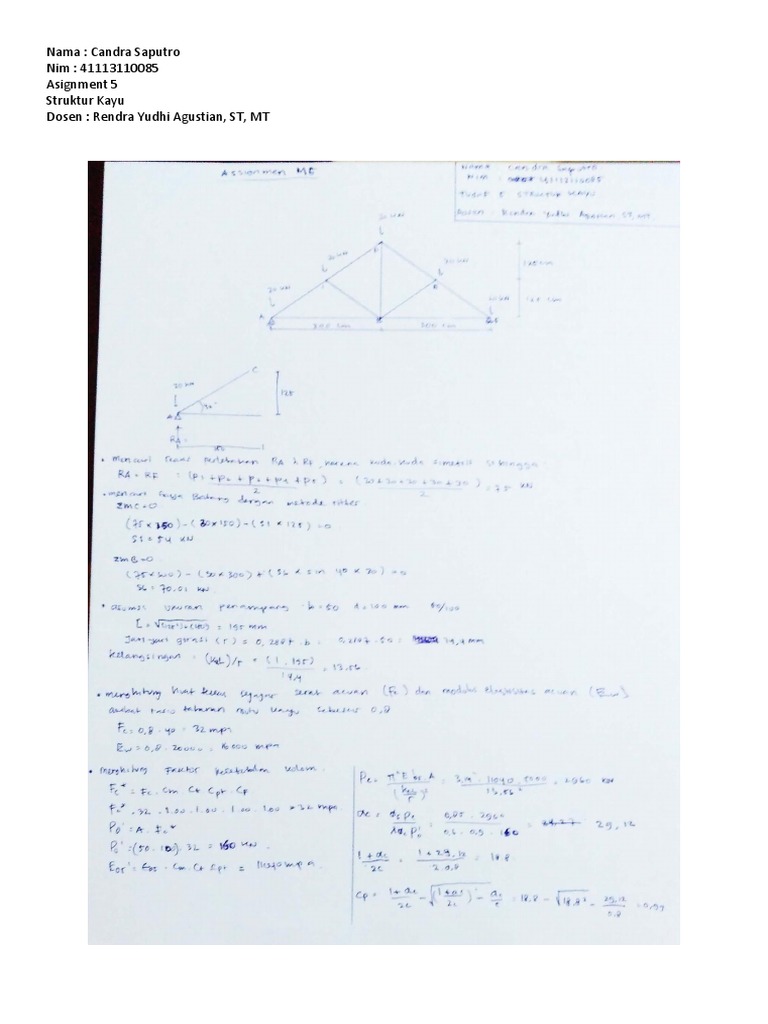 Nama : Candra Saputro
Nim : 41113110085
Asignment 5
Struktur Kayu
Dosen : Rendra Yudhi Agustian, ST, MT
Assignmen M5
Nama : Candra Saputro
NIM : 41113110085
Tugas 5 Struktur Kayu
Dosen : Rendra Yudhi Agustian ST, MT
20 kN
20 kN
20 kN
20 kN
20 kN
A
300 cm
300 cm
125 cm
125 cm
20 kN
C
A
30°
125
RA
mencari reaksi perletakan RA & RF, karena kuda-kuda simetris sehingga
RA = RF =
2
2
= 75 kN
mencari gaya Batang dengan metode ritter
ΣMC=0
(75 x 150) - (30x150) - (S1 x 125) = 0
S1 = 54 kN
ΣMB=0
(75x300) - (30x300) + (S6 x sin 40 x 20) = 0
S6 = 70.01 kN
asumsi ukuran penampang b=50 d=100 mm 50/100
= 195 mm
Jari-jari girasi (r) = 0,2887 . b = 0,2887 . 50 = 14,4 mm
Kelangsingan = (KeL)/r = (1 . 195) / 14,4 = 13.56
menghitung kuat tekan sejajar serat acuan (Fc) dan modulus elastisitas acuan (Ew)
ambil rasio tahanan mutu kayu sebesar 0,8
Fc = 0,8 . 40 = 32 mpa
Ew = 0,8 . 20000 = 16000 mpa
menghitung Faktor kestabilan kolom
Fc* = Fc . Cm Ct Cpt . CF
Fc* = 32 . 1.00 . 1.00 . 1.00 . 1.00 = 32 mpa
Po' = A . Fc*
Po' = (50 . 100) . 32 = 160 kN
E05' = E05 . Cm . Ct Cpt =
Pe = π² E'05 A / (KeL/r)² = 3,14² . 11040 . 5000 / 13.56² = 2960 kN
αc = φs Pe / λφc Po' = 0,85 . 2960 / 0,6 . 0,9 . 160 = 29,12
1 + αc / 2c = 1 + 29,12 / 2 . 0,8 = 18.8
Cp = 1+αc / 2c - √(1+αc / 2c)² - αc / c = 18.8 - √18,8² - 29,12 / 0.8 = 0,99